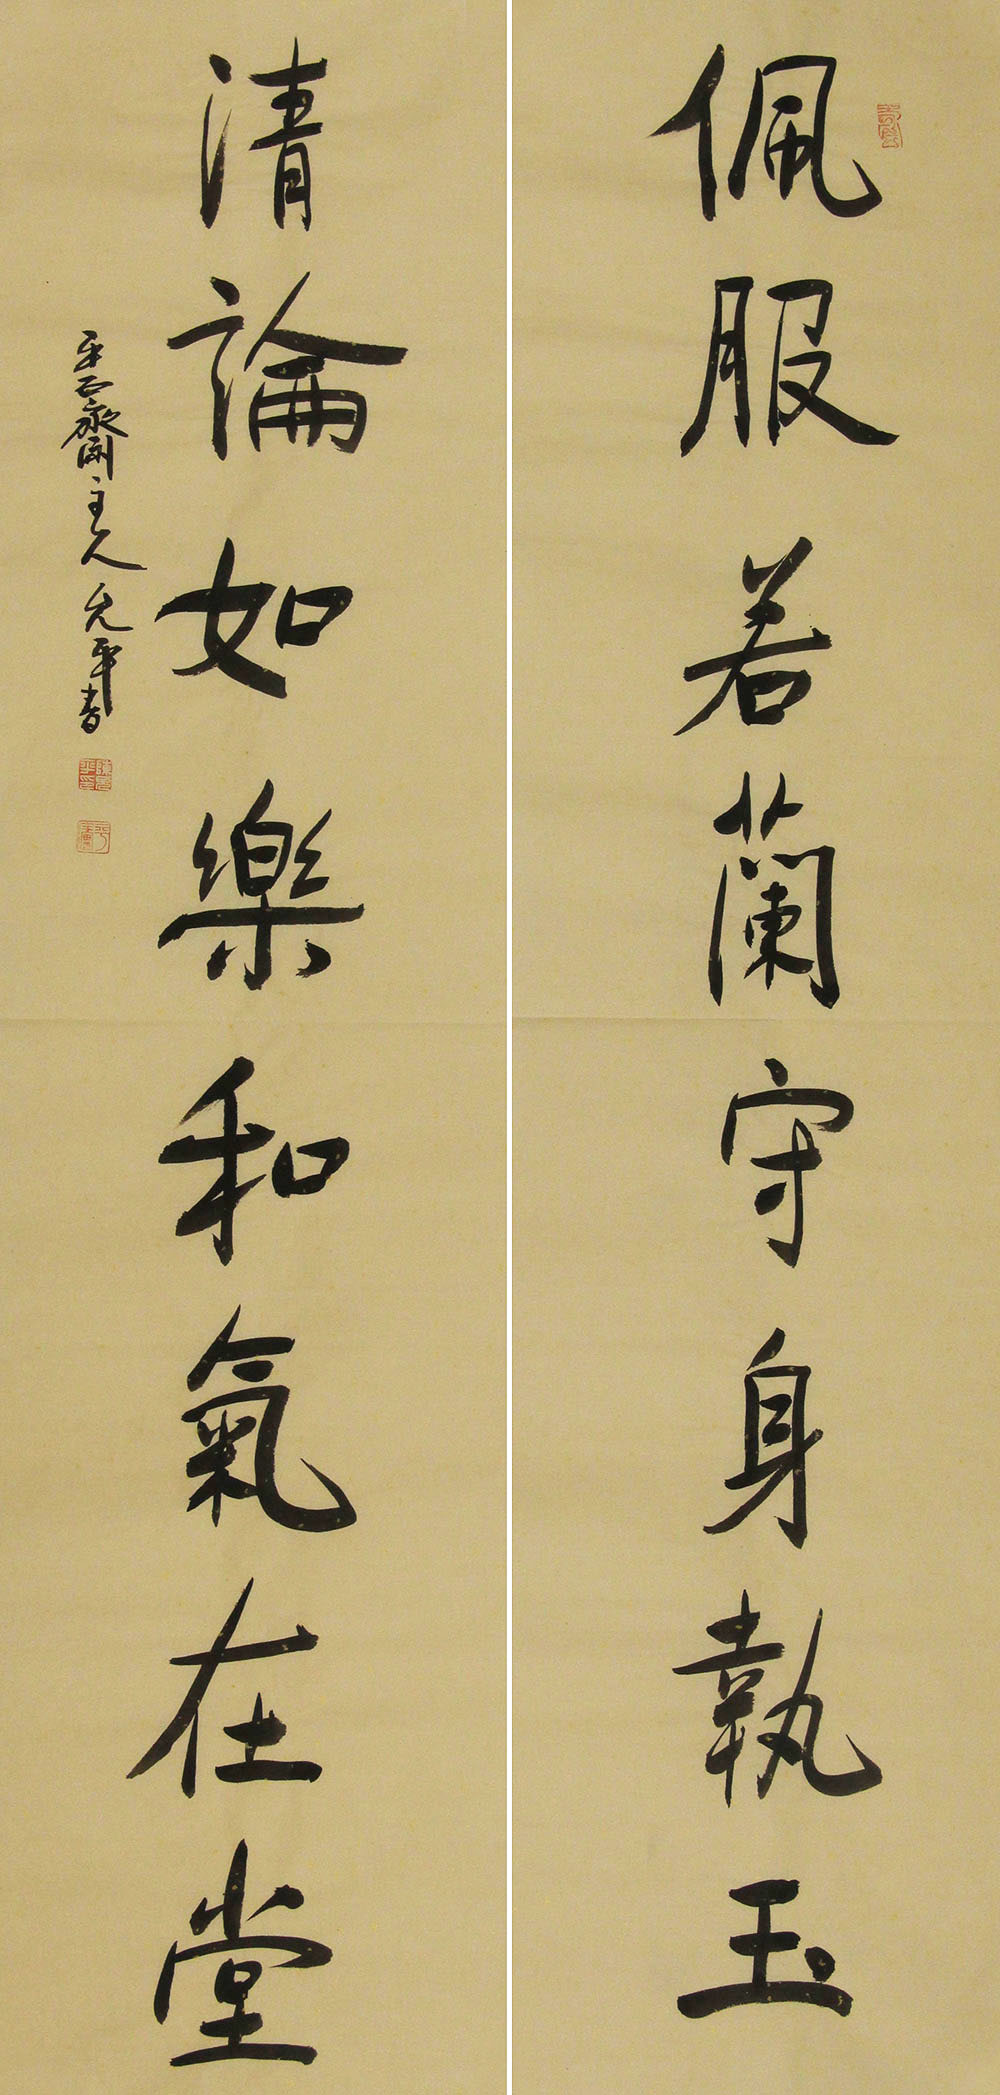 佩服若蘭守身執玉
清論如樂和氣在堂
齋主人允平書